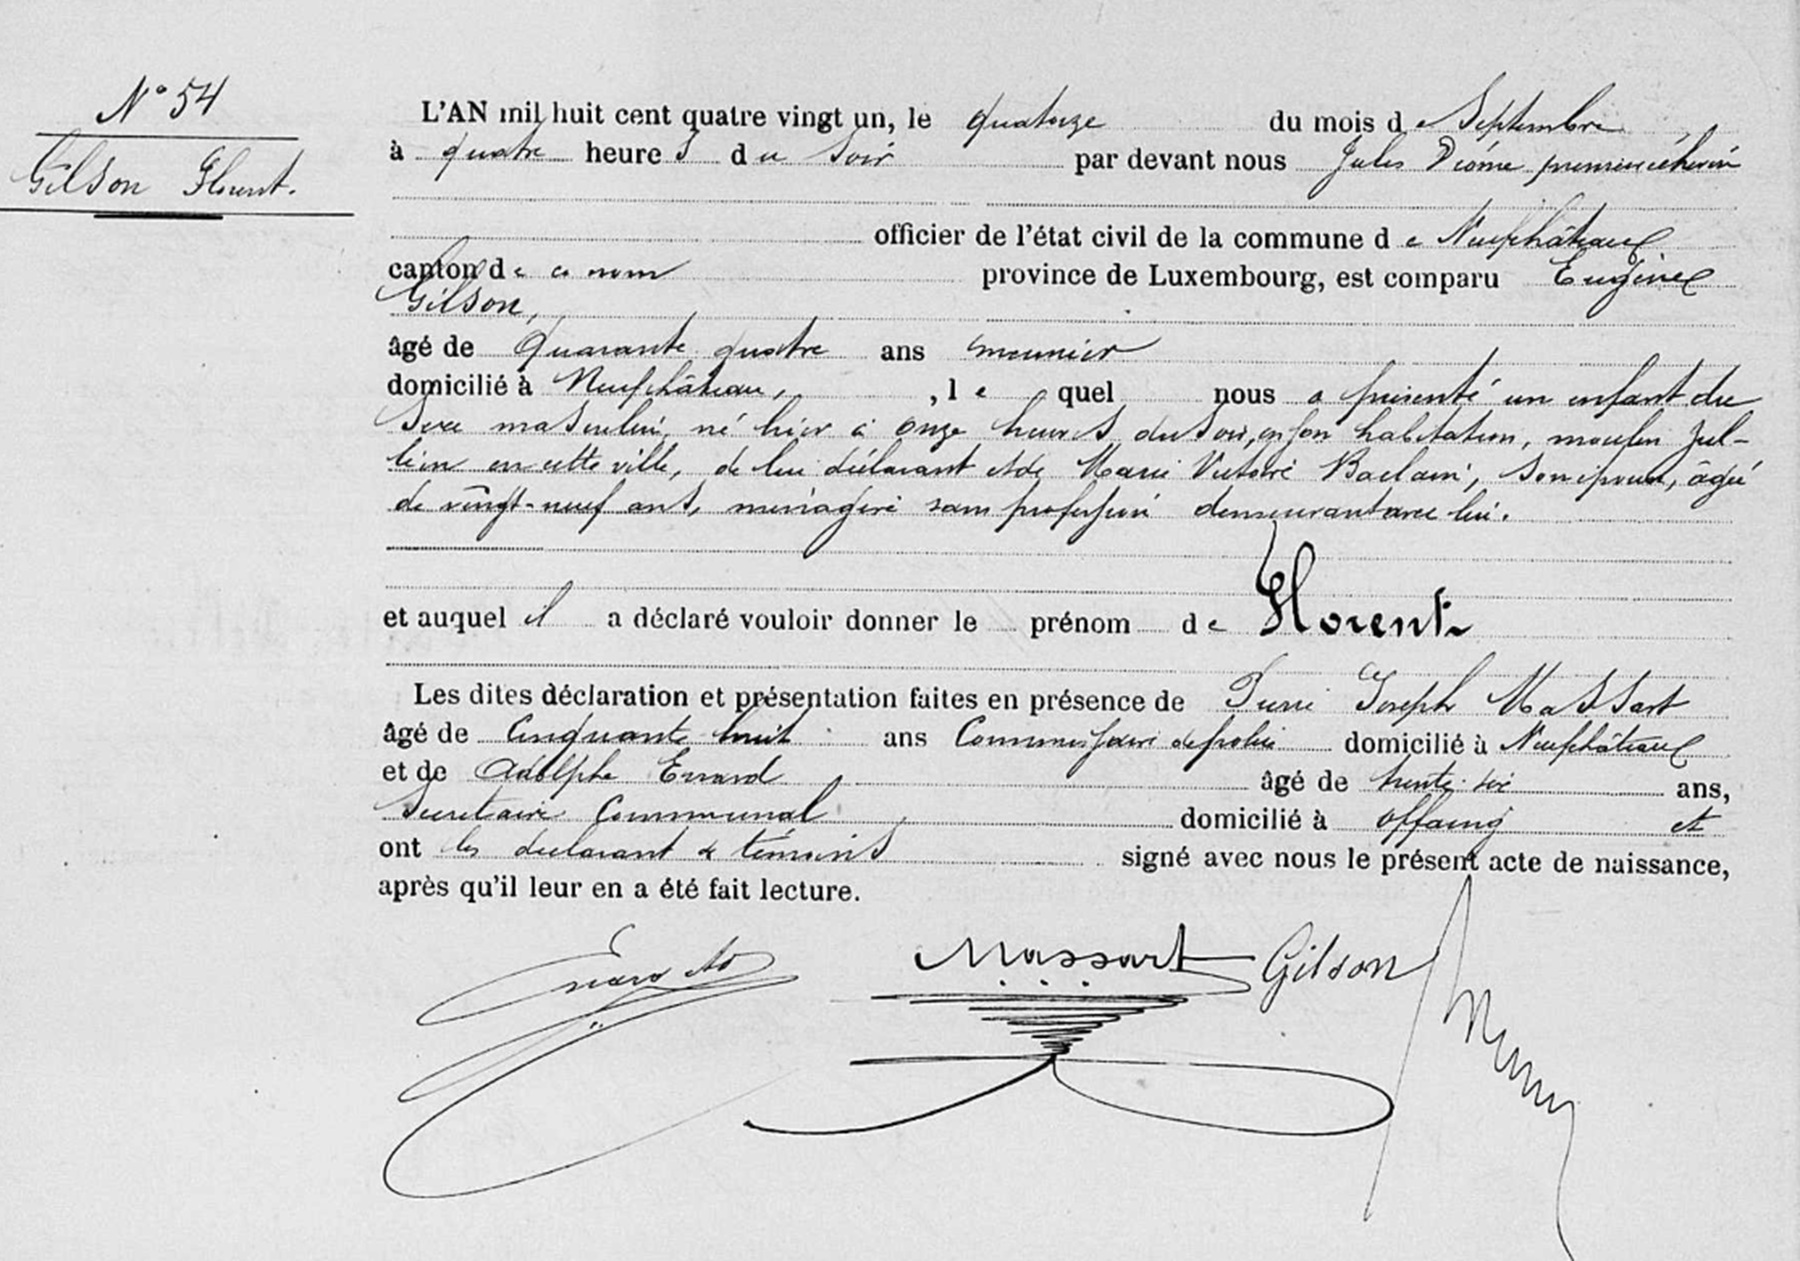 N° 54
Gilson Florent.
L'AN mil huit cent quatre vingt un, le quatorze du mois de Septembre
à quatre heures du Soir par devant nous Jules premier échevin
officier de l'état civil de la commune de Neufchâteau
canton de ce nom province de Luxembourg, est comparu Eugène
Gilson,
âgé de Quarante quatre ans meunier
domicilié à Neufchâteau, , lequel nous a présenté un enfant du
Sexe masculin, né hier à onze heures du Soir, en son habitation, moulin
en cette ville, de lui déclarant et de Marie Victoire son épouse, âgée
de vingt-neuf ans, ménagère sans profession demeurant avec lui.
et auquel il a déclaré vouloir donner le prénom de Florent
Les dites déclaration et présentation faites en présence de Pierre Joseph Massart
âgé de Cinquante huit ans Commissaire de police domicilié à Neufchâteau
et de Adolphe Evrard âgé de trente six ans,
Secrétaire Communal domicilié à offaing et
ont les déclarant & témoins signé avec nous le présent acte de naissance,
après qu'il leur en a été fait lecture.
Evrard Ad Massart Gilson